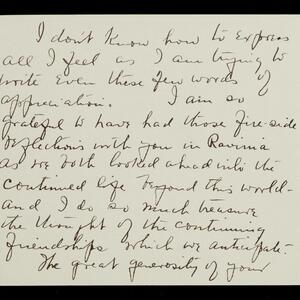 I don't know how to express
all I feel as I am trying to
write even these few words of
appreciation. I am so
grateful to have had those fire-side
reflections with you in Ravinia
as we both looked ahead into the
continued life beyond this world -
and I do so much treasure
the thought of the continuing
friendships which we anticipate.
The great generosity of your